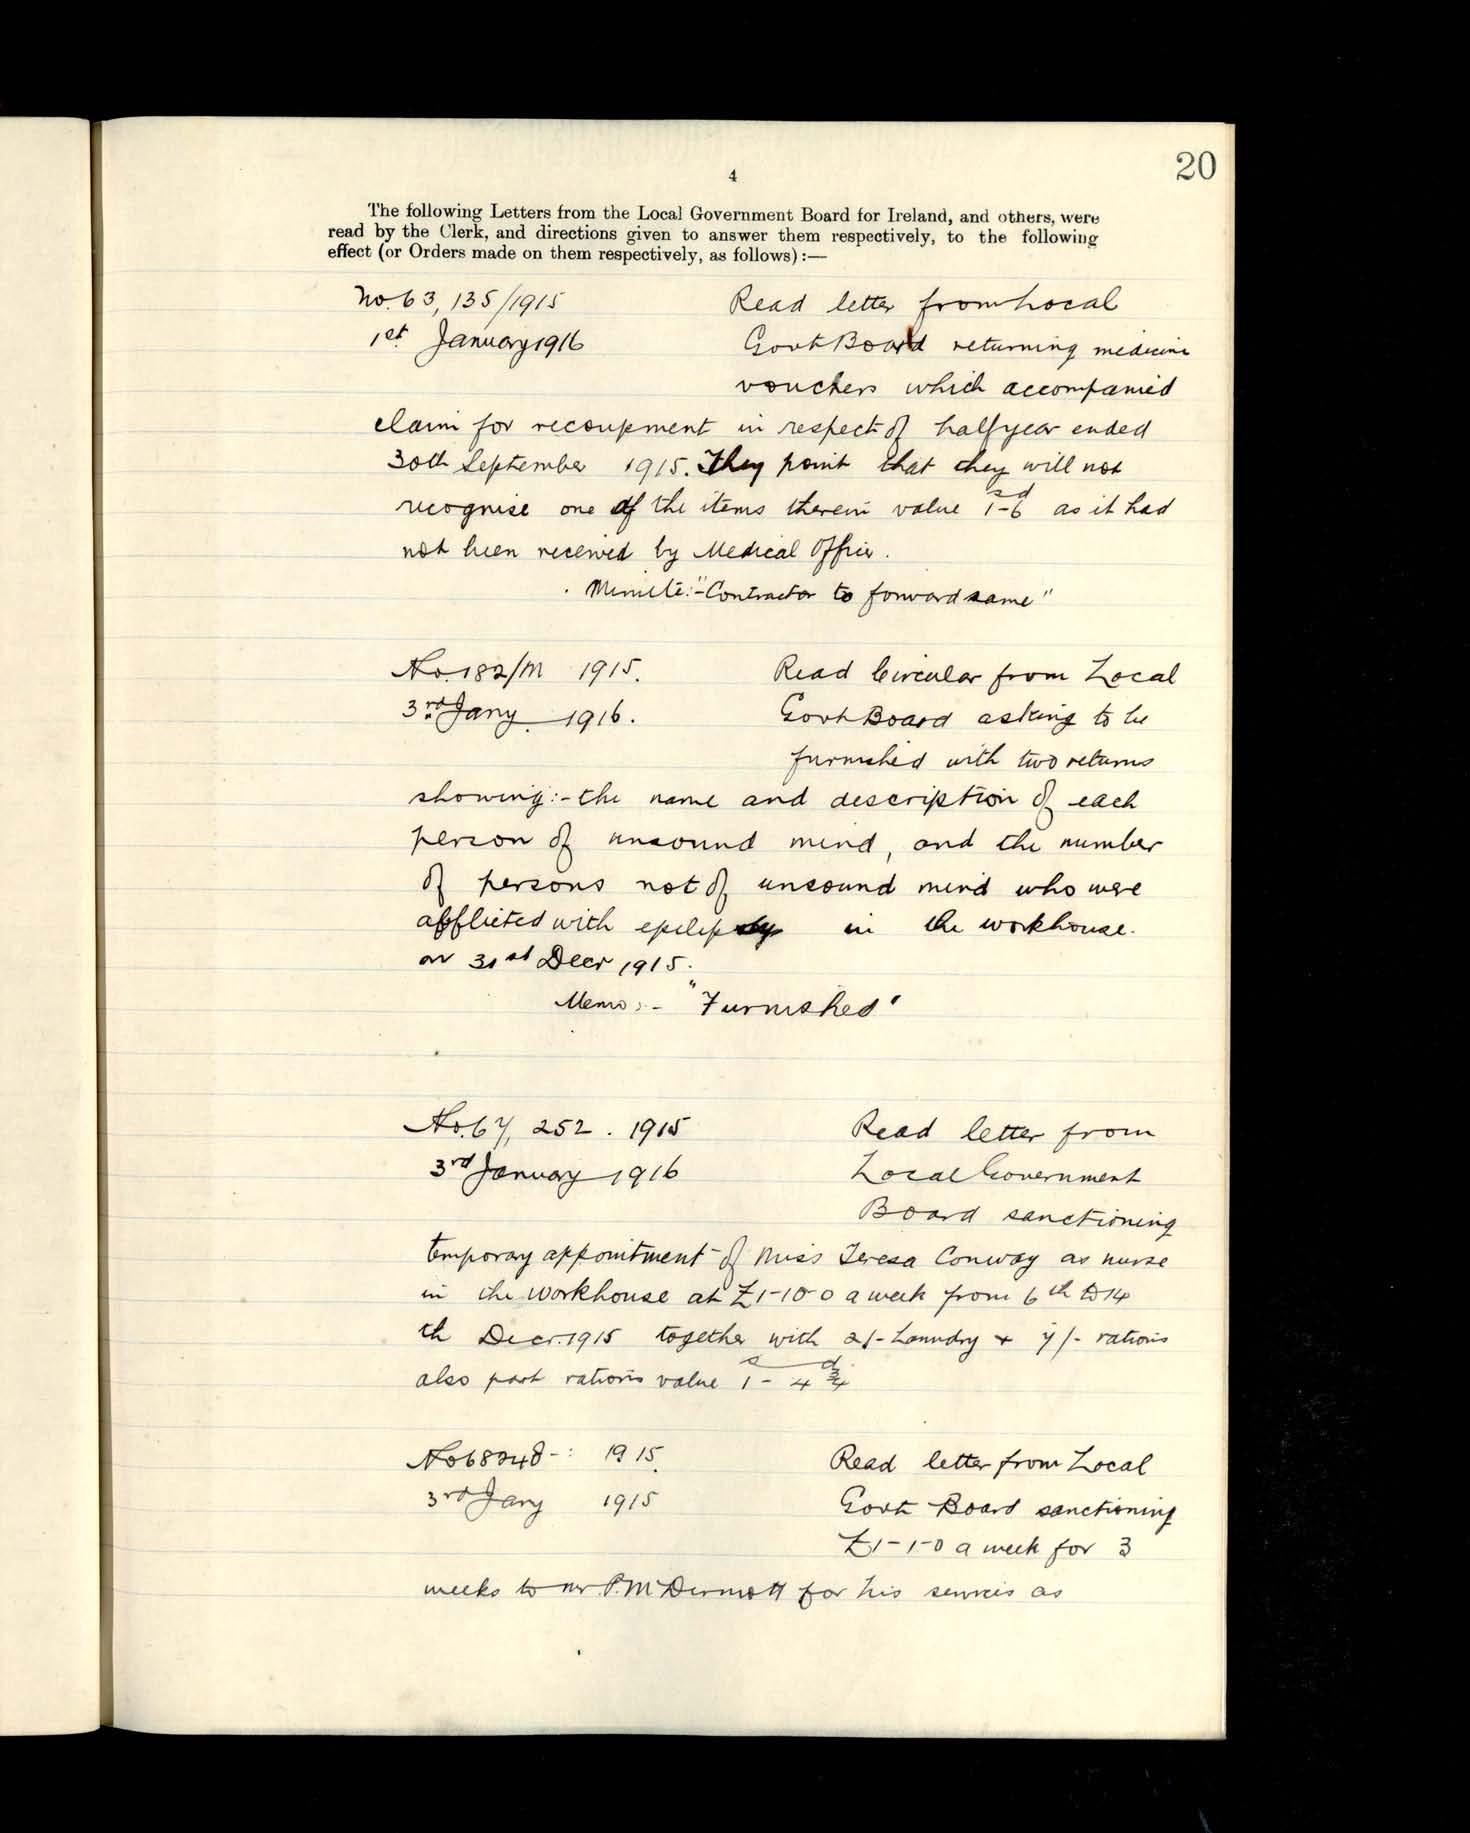 20
4
The following Letters from the Local Government Board for Ireland, and others, were
read by the Clerk, and directions given to answer them respectively, to the following
effect (or Orders made on them respectively, as follows):—
No. 63,135/1915 Read letter from Local
1st January 1916 Govt Board returning medicine
vouchers which accompanied
claim for recoupment in respect of half year ended
30th September 1915. They point that they will not
recognise one of the items therein value 1s-6d as it had
not been received by Medical Officer.
Minute:- "Contractor to forward same"
No. 182/M 1915. Read Circular from Local
3rd Jany. 1916. Govt Board asking to be
furnished with two returns
showing:- the name and description of each
person of unsound mind, and the number
of persons not of unsound mind who were
afflicted with epilepsy in the workhouse.
on 31st Decr 1915.
Memo:- "Furnished"
No. 67,252. 1915 Read letter from
3rd January 1916 Local Government
Board sanctioning
temporary appointment of Miss Teresa Conway as nurse
in the workhouse at £1-10-0 a week from 6th to 14
th Decr. 1915 together with 2/- Laundry & 7/- rations
also part rations value 1s-4d¾
No 68248-: 1915. Read letter from Local
3rd Jany 1915 Govt Board sanctioning
£1-1-0 a week for 3
weeks to Mr P. McDermott for his services as